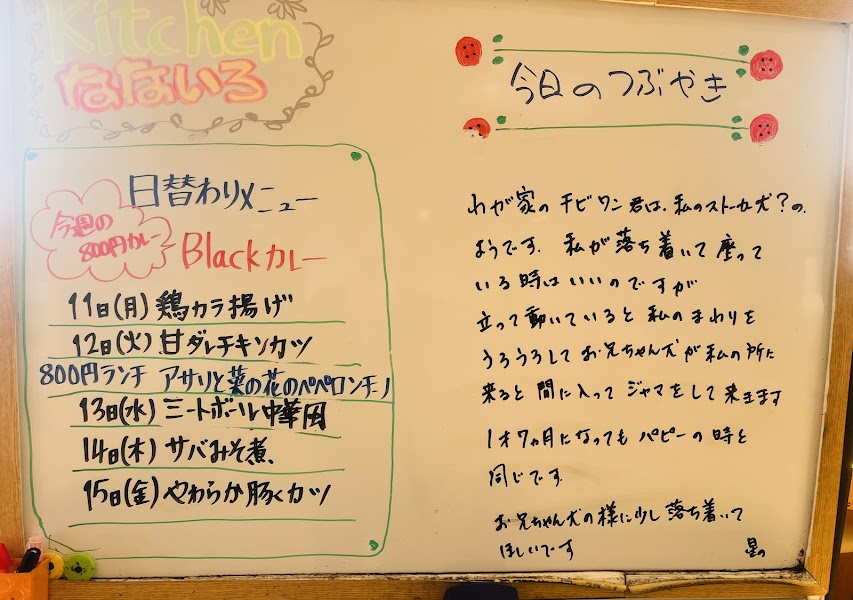 Kitchen
なないろ
日替わりメニュー
今週の
800円カレー
Blackカレー
11日(月) 鶏カラ揚げ
12日(火) 甘ダレチキンカツ
800円ランチ アサリと菜の花のペペロンチーノ
13日(水) ミートボール中華風
14日(木) サバみそ煮、
15日(金) やわらか豚くカツ
今日のつぶやき
わが家のチビワン君は、私のストーカー犬?の
ようです。私が落ち着いて座って
いる時はいいのですが
立って動いていると私のまわりを
うろうろしてお兄ちゃん犬が私の所に
来ると間に入ってジャマをして来ます
1才7ヵ月になってもパピーの時と
同じです。
お兄ちゃん犬の様に少し落ち着いて
ほしいです